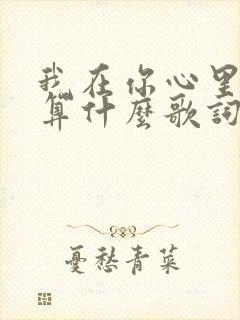 我在你心里
算什麼歌詞
憂愁青菜